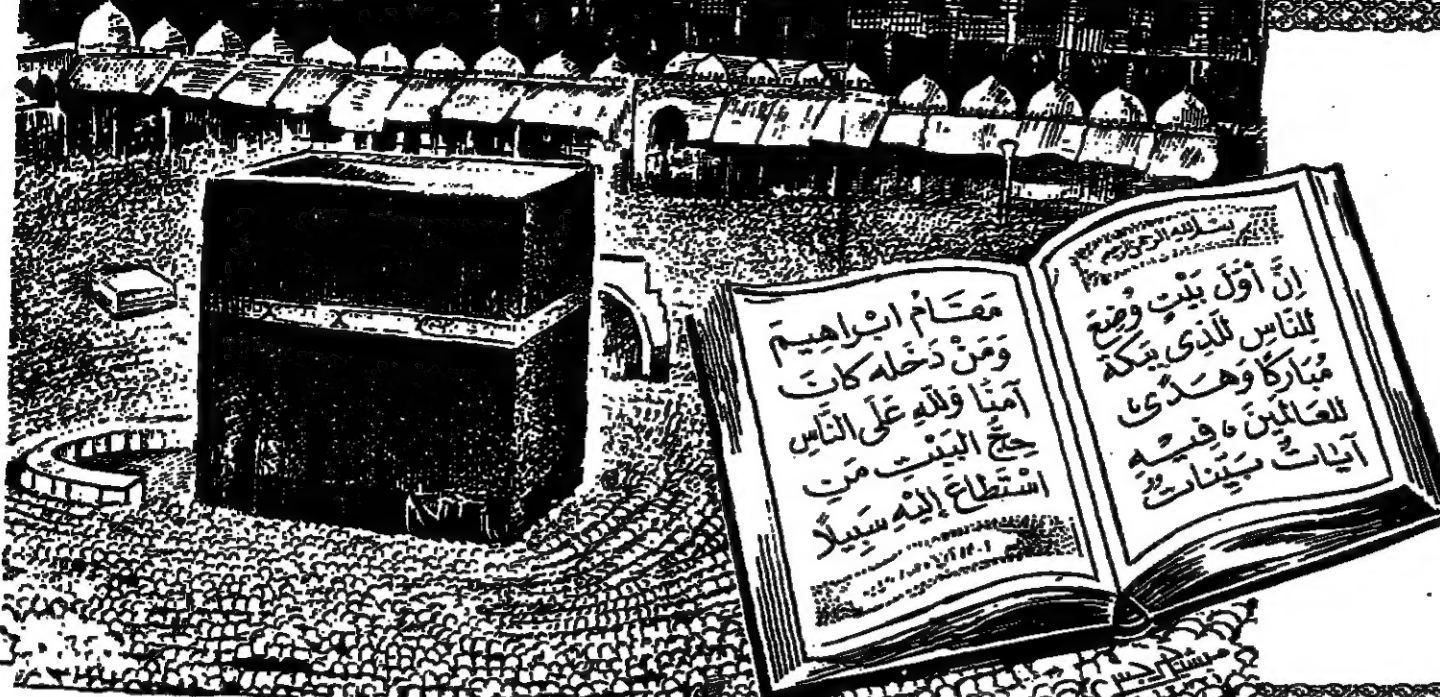 بسم الله الرحمن الرحيم
اِنَّ أَوَّلَ بَيْتٍ وُضِعَ
لِلنَّاسِ لَلَّذِى بِبَكَّةَ
مُبَارَكًا وَهُدًى
لِلعَالَمِينَ، فِيهِ
آيَاتٌ بَيِّنَاتٌ
مَقَامُ ابْرَاهِيمَ
وَمَنْ دَخَلَه كَانَ
آمَنًا وَللّهِ عَلَى النَّاسِ
حِجُّ البَيْتِ مَنِ
اسْتَطَاعَ إِلَيْهِ سَبِيلًا